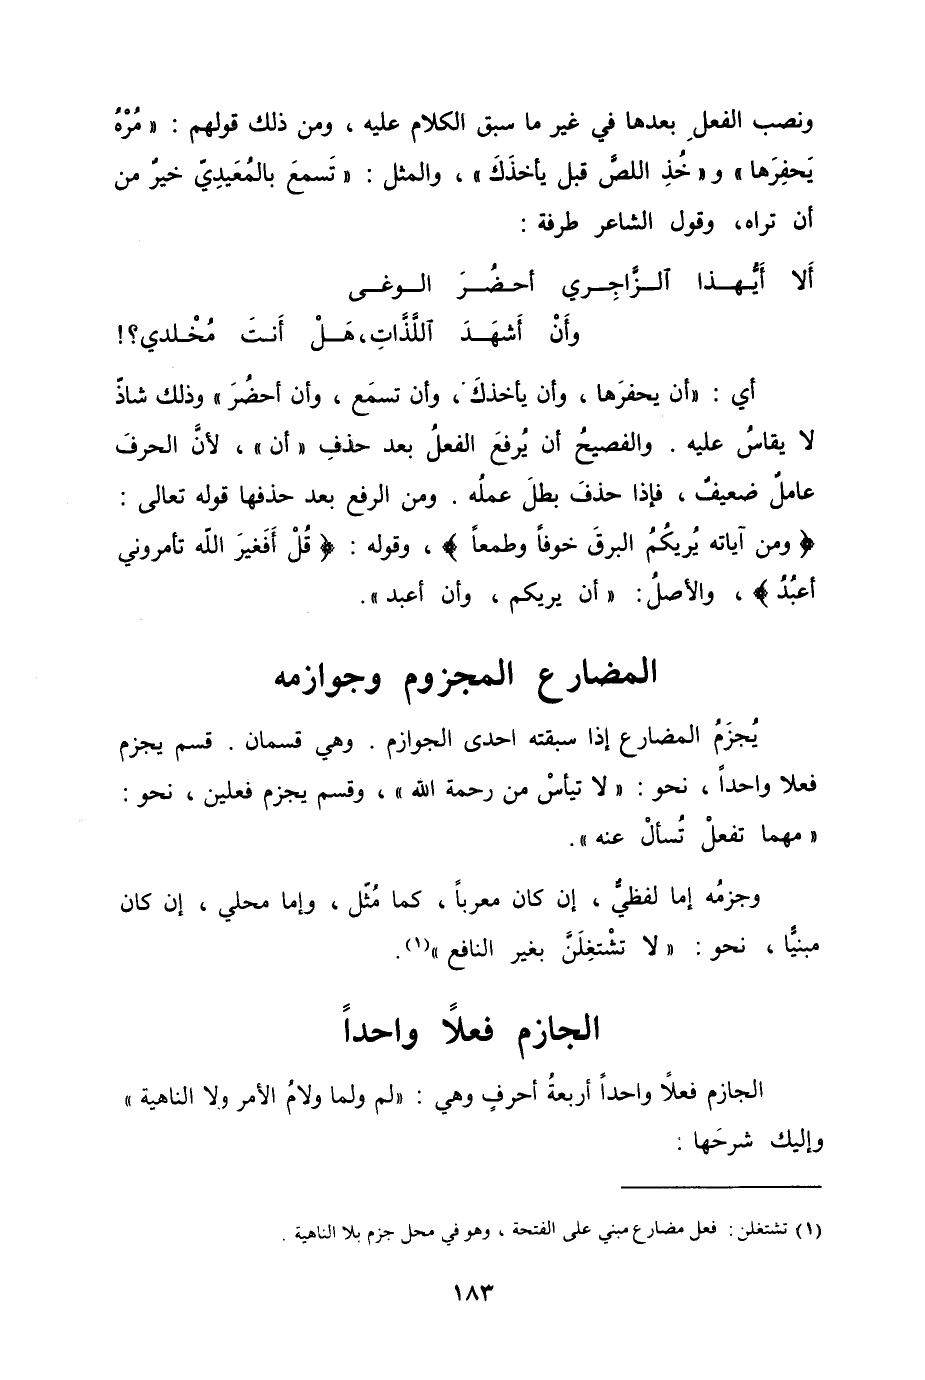 ونصب الفعلِ بعدها في غير ما سبق الكلام عليه ، ومن ذلك قولهم : « مُرْهُ
يَحفِرَها » و« خُذِ اللصَّ قبل يأخذَكَ » ، والمثل : « تَسمعَ بالمُعَيدِيّ خيرٌ من
أن تراه، وقول الشاعر طرفة :
أَلا أَيُّهـذا ٱلـزَّاجِـري أحـضُـرَ الـوغـى
وأَنْ أَشهَـدَ ٱللَّذَّاتِ، هَـلْ أَنـتَ مُخْـلدي؟!
أي : «أن يحفرَها ، وأن يأخذكَ ، وأن تسمَع ، وأن أحضُرَ » وذلك شاذّ
لا يقاسُ عليه . والفصيحُ أن يُرفعَ الفعلُ بعد حذفِ « أن » ، لأنَّ الحرفَ
عاملٌ ضعيفٌ ، فإذا حذفَ بطلَ عملُه . ومن الرفع بعد حذفها قوله تعالى :
﴿ ومن آياته يُريكُمُ البرقَ خوفاً وطمعاً ﴾ ، وقوله : ﴿ قُلْ أَفَغيرَ اللّه تأمروني
أعبُدُ ﴾ ، والأصلُ: « أن يريكم ، وأن أعبد ».
المضارع المجزوم وجوازمه
يُجزَمُ المضارع إذا سبقته احدى الجوازم . وهي قسمان . قسم يجزم
فعلا واحداً ، نحو : « لا تيأسْ من رحمة الله » ، وقسم يجزم فعلين ، نحو :
« مهما تفعلْ تُسألْ عنه ».
وجزمُه إما لفظيٌّ ، إن كان معرباً ، كما مُثّل ، وإما محلي ، إن كان
مبنيًّا ، نحو : « لا تشْتغِلَنَّ بغير النافع »(١).
الجازم فعلاً واحداً
الجازم فعلًا واحداً أربعةُ أحرفٍ وهي : «لم ولما ولامُ الأمر ولا الناهية »
وإليك شرحَها :
(١) تشتغلن : فعل مضارع مبني على الفتحة ، وهو في محل جزم بلا الناهية .
١٨٣